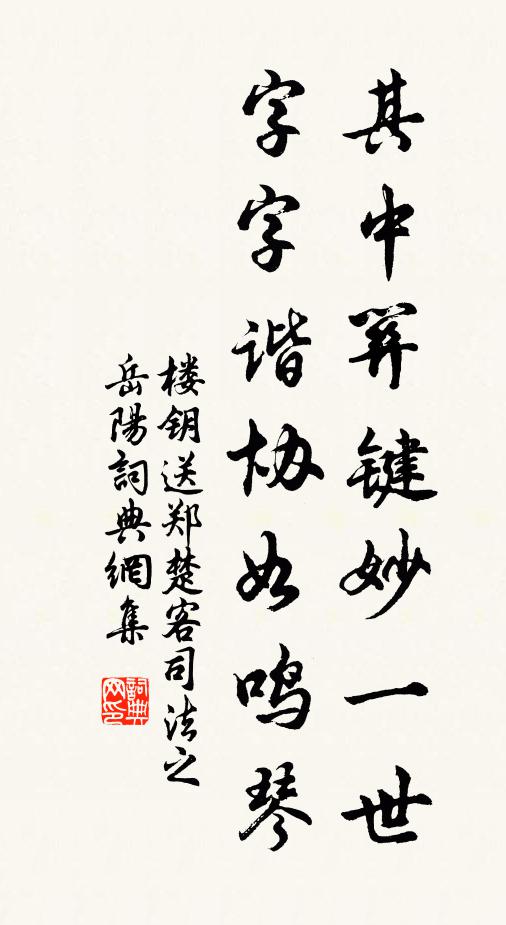 其中关键妙一世
字字谐协如鸣琴
楼钥送郑楚客司法之
岳陽詞典網集
詞典网印